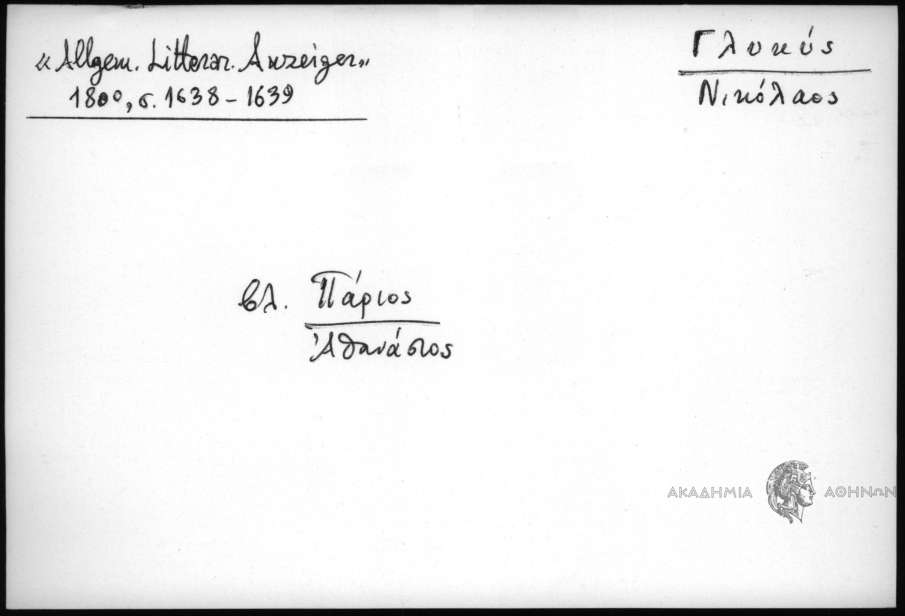 «Allgem. Litterar. Anzeiger»
1800, σ. 1638 – 1639
Γλυκύς
Νικόλαος
βλ. Πάριος
Ἀθανάσιος
ΑΚΑΔΗΜΙΑ ΑΘΗΝΩΝ